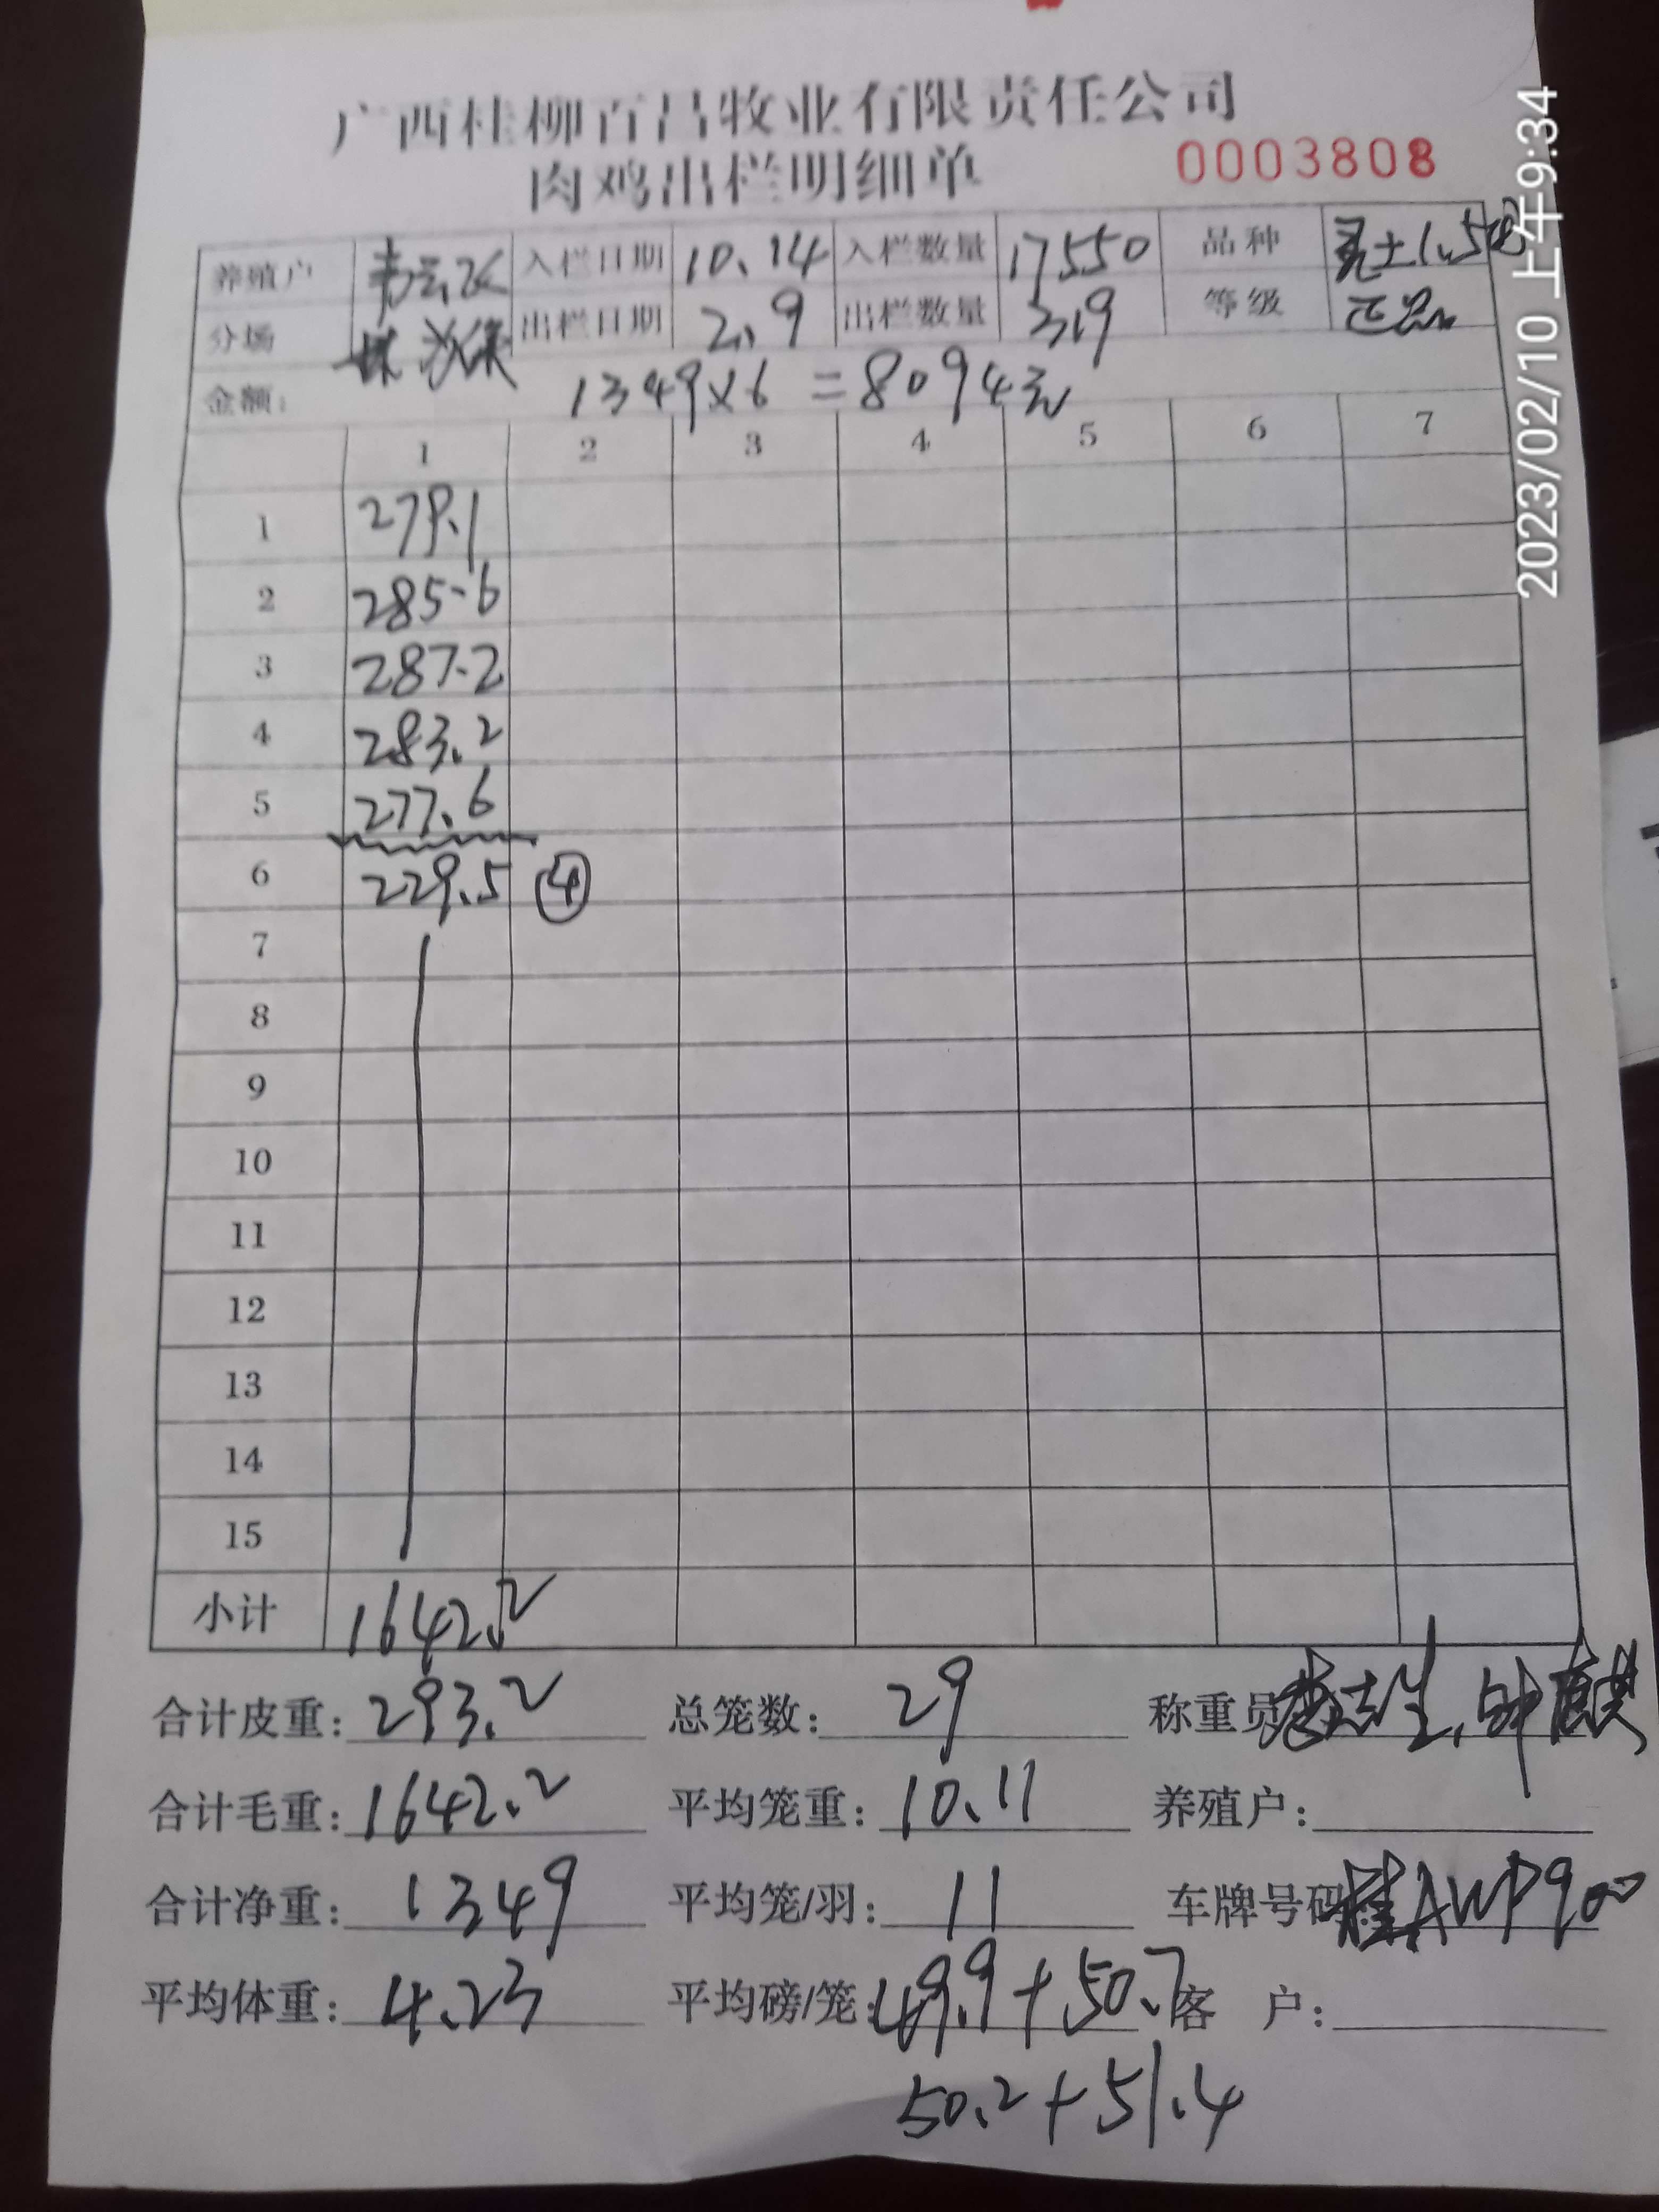 广西桂柳百昌牧业有限责任公司
肉鸡出栏明细单 0003808
养殖户 入栏日期 10.14 入栏数量 17550 品种 土1.5
分场 出栏日期 2.9 出栏数量 319 等级 正品
金额: 1349×6=8094元
1 2 3 4 5 6 7
1 279.1
2 285.6
3 287.2
4 283.2
5 277.6
6 229.5 ④
7
8
9
10
11
12
13
14
15
小计 1642.2
合计皮重: 293.2 总笼数: 29 称重员
合计毛重: 1642.2 平均笼重: 10.11 养殖户:
合计净重: 1349 平均笼/羽: 11 车牌号码 桂AWP900
平均体重: 4.23 平均磅/笼: 49.9+50.7 客 户:
50.2+51.4
2023/02/10 上午9:34